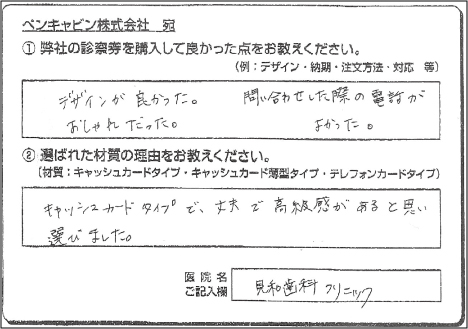 ペンキャビン株式会社 宛
① 弊社の診察券を購入して良かった点をお教えください。
(例：デザイン・納期・注文方法・対応 等)
デザインが良かった。
おしゃれだった。
問い合わせした際の電話が
よかった。
② 選ばれた材質の理由をお教えください。
(材質：キャッシュカードタイプ・キャッシュカード薄型タイプ・テレフォンカードタイプ)
キャッシュカードタイプで、丈夫で高級感があると思い
選びました。
医院名
ご記入欄
見和歯科クリニック